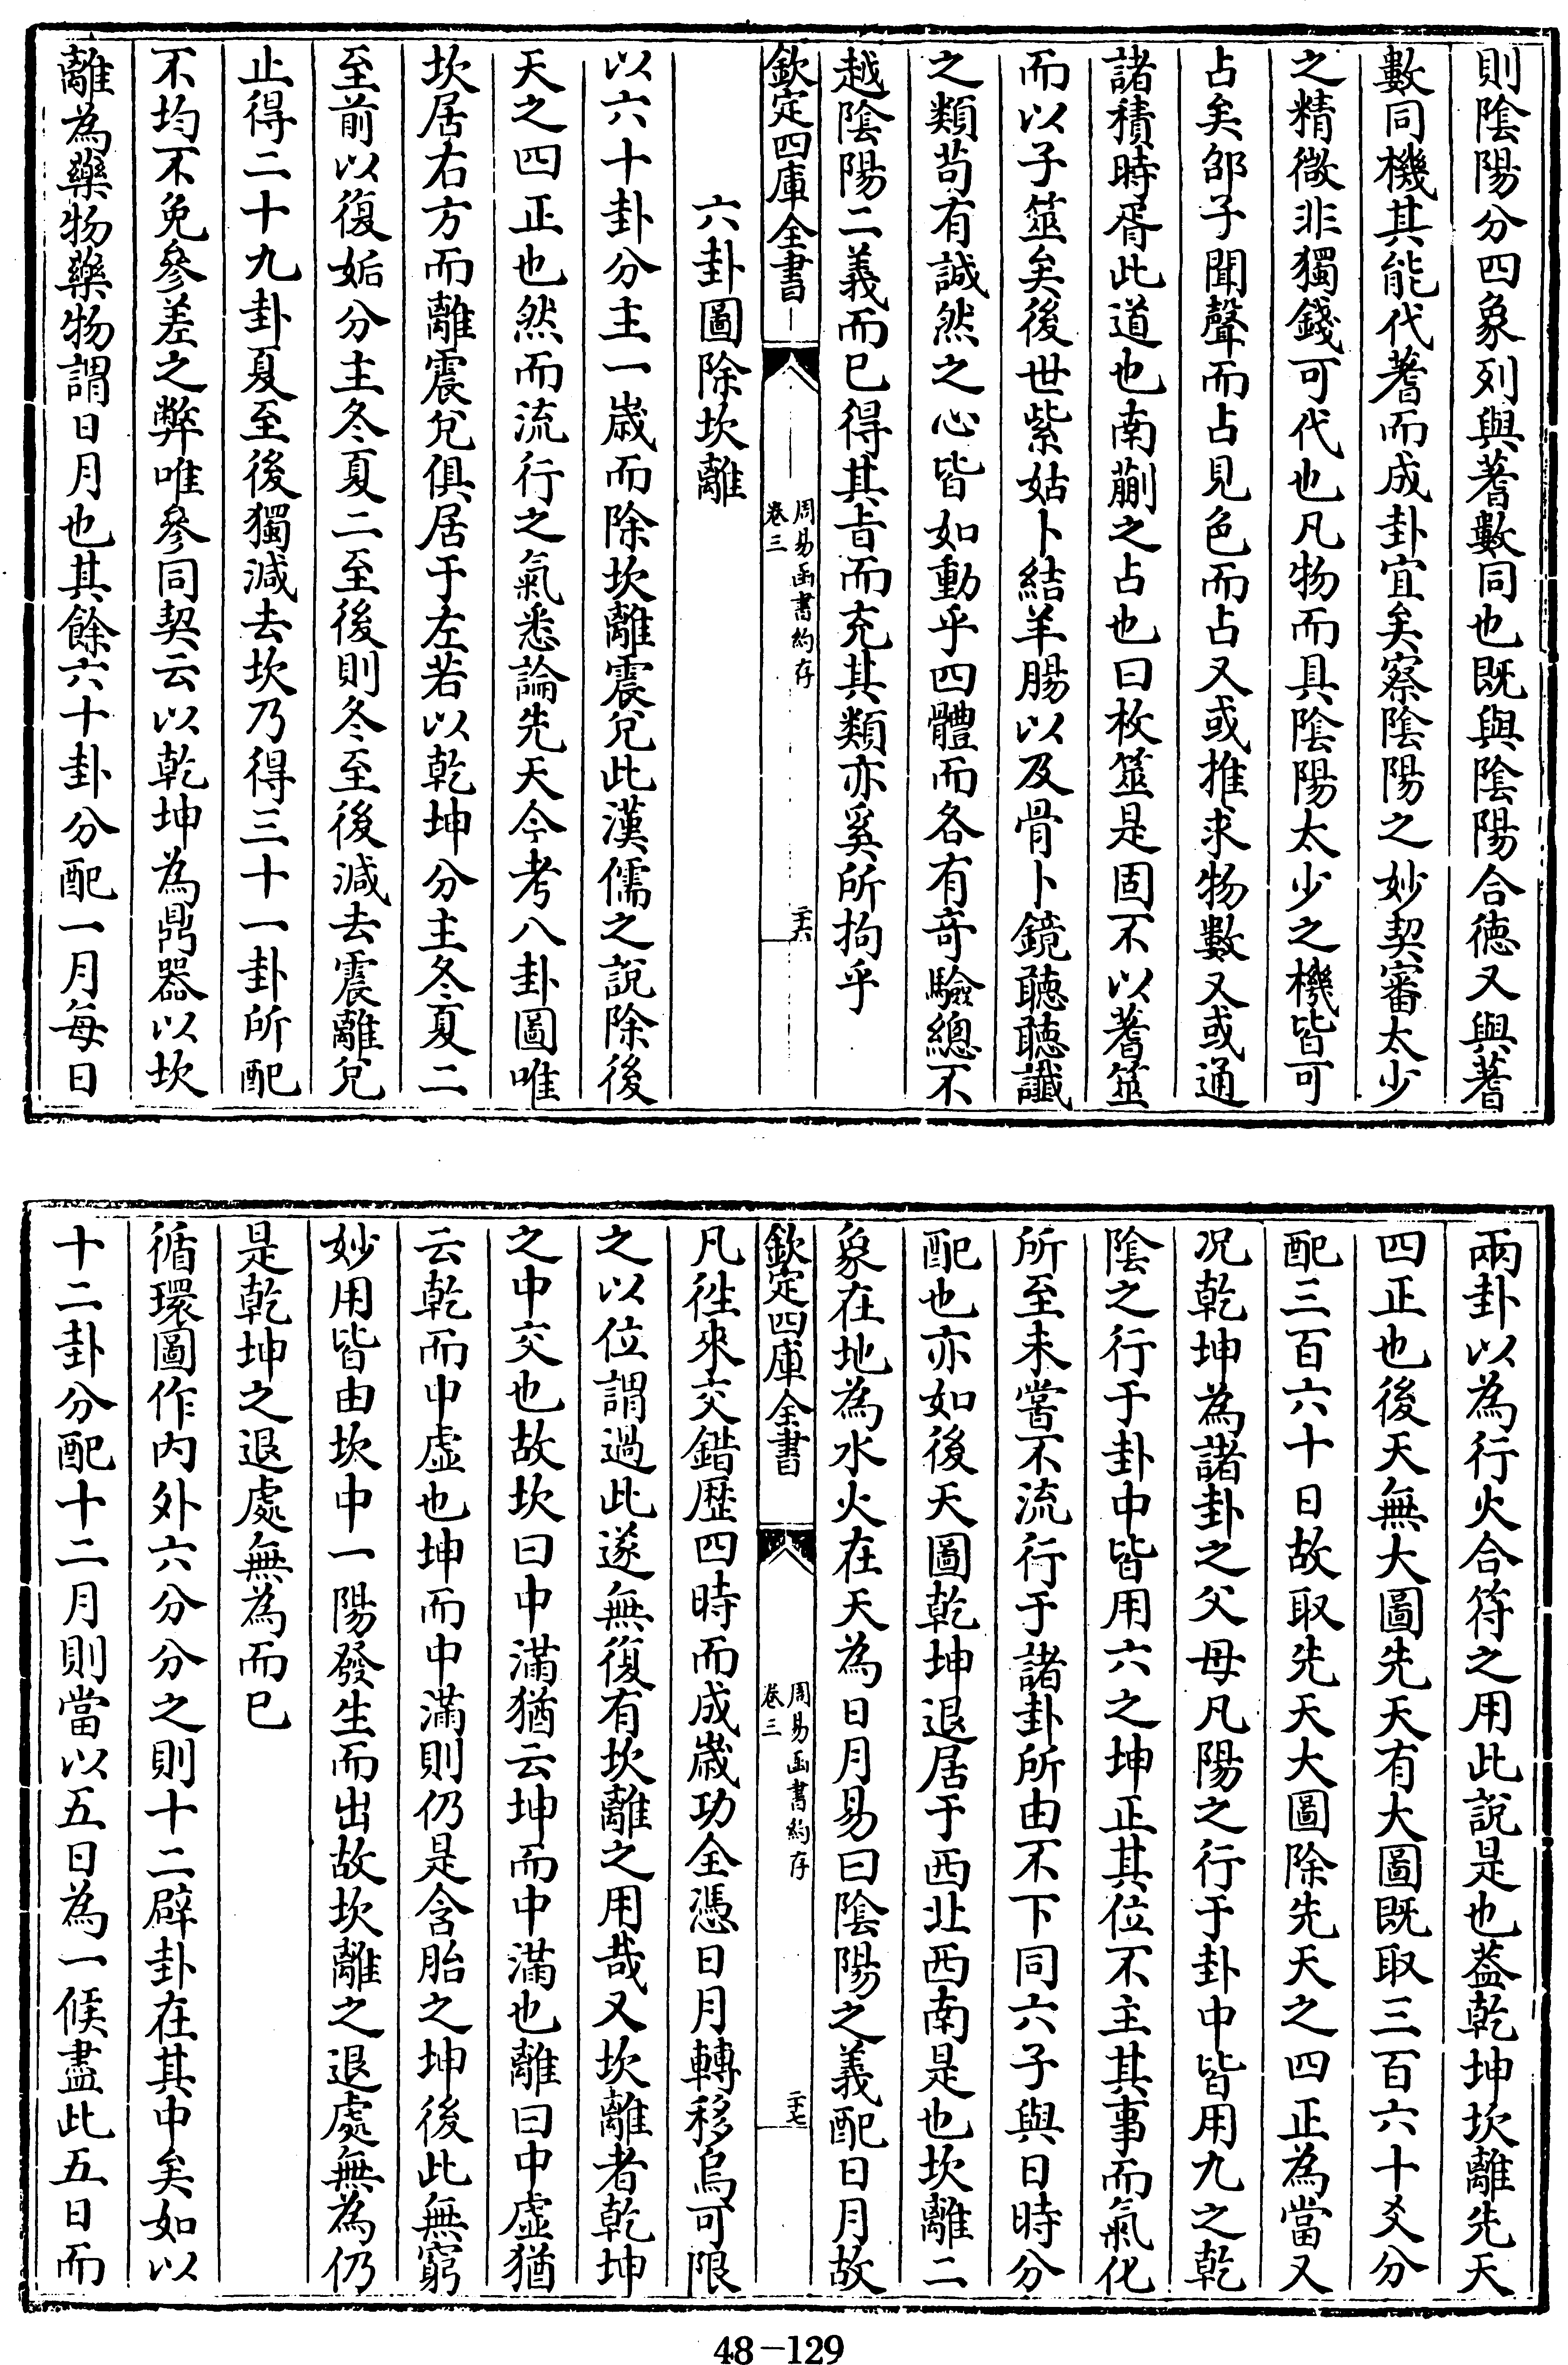 則陰陽分四象列與蓍數同也既與陰陽合德又與蓍
數同機其能代蓍而成卦宜矣察陰陽之妙契審太少
之精微非獨錢可代也凡物而具陰陽太少之機皆可
占矣邵子聞聲而占見色而占又或推求物數又或通
諸積時胥此道也南蒯之占也曰枚筮是固不以蓍筮
而以子筮矣後世紫姑卜結羊腸以及骨卜鏡聽聽讖
之類苟有誠然之心皆如動乎四體而各有奇驗總不
越陰陽二義而已得其旨而充其類亦奚所拘乎
欽定四庫全書
周易函書約存
卷三
二十六
六卦圖除坎離
以六十卦分主一歲而除坎離震兌此漢儒之說除後
天之四正也然而流行之氣悉論先天今考八卦圖唯
坎居右方而離震兌俱居于左若以乾坤分主冬夏二
至前以復姤分主冬夏二至後則冬至後減去震離兌
止得二十九卦夏至後獨減去坎乃得三十一卦所配
不均不免參差之弊唯參同契云以乾坤為鼎器以坎
離為藥物藥物謂日月也其餘六十卦分配一月每日
兩卦以為行火合符之用此說是也葢乾坤坎離先天
四正也後天無大圖先天有大圖既取三百六十爻分
配三百六十日故取先天大圖除先天之四正為當又
况乾坤為諸卦之父母凡陽之行于卦中皆用九之乾
陰之行于卦中皆用六之坤正其位不主其事而氣化
所至未嘗不流行于諸卦所由不下同六子與日時分
配也亦如後天圖乾坤退居于西北西南是也坎離二
象在地為水火在天為日月易曰陰陽之義配日月故
欽定四庫全書
周易函書約存
卷三
二十七
凡徃來交錯歷四時而成歲功全憑日月轉移烏可限
之以位謂過此遂無復有坎離之用哉又坎離者乾坤
之中交也故坎曰中滿猶云坤而中滿也離曰中虛猶
云乾而中虛也坤而中滿則仍是含胎之坤後此無窮
妙用皆由坎中一陽發生而出故坎離之退處無為仍
是乾坤之退處無為而已
循環圖作內外六分分之則十二辟卦在其中矣如以
十二卦分配十二月則當以五日為一候盡此五日而
48-129